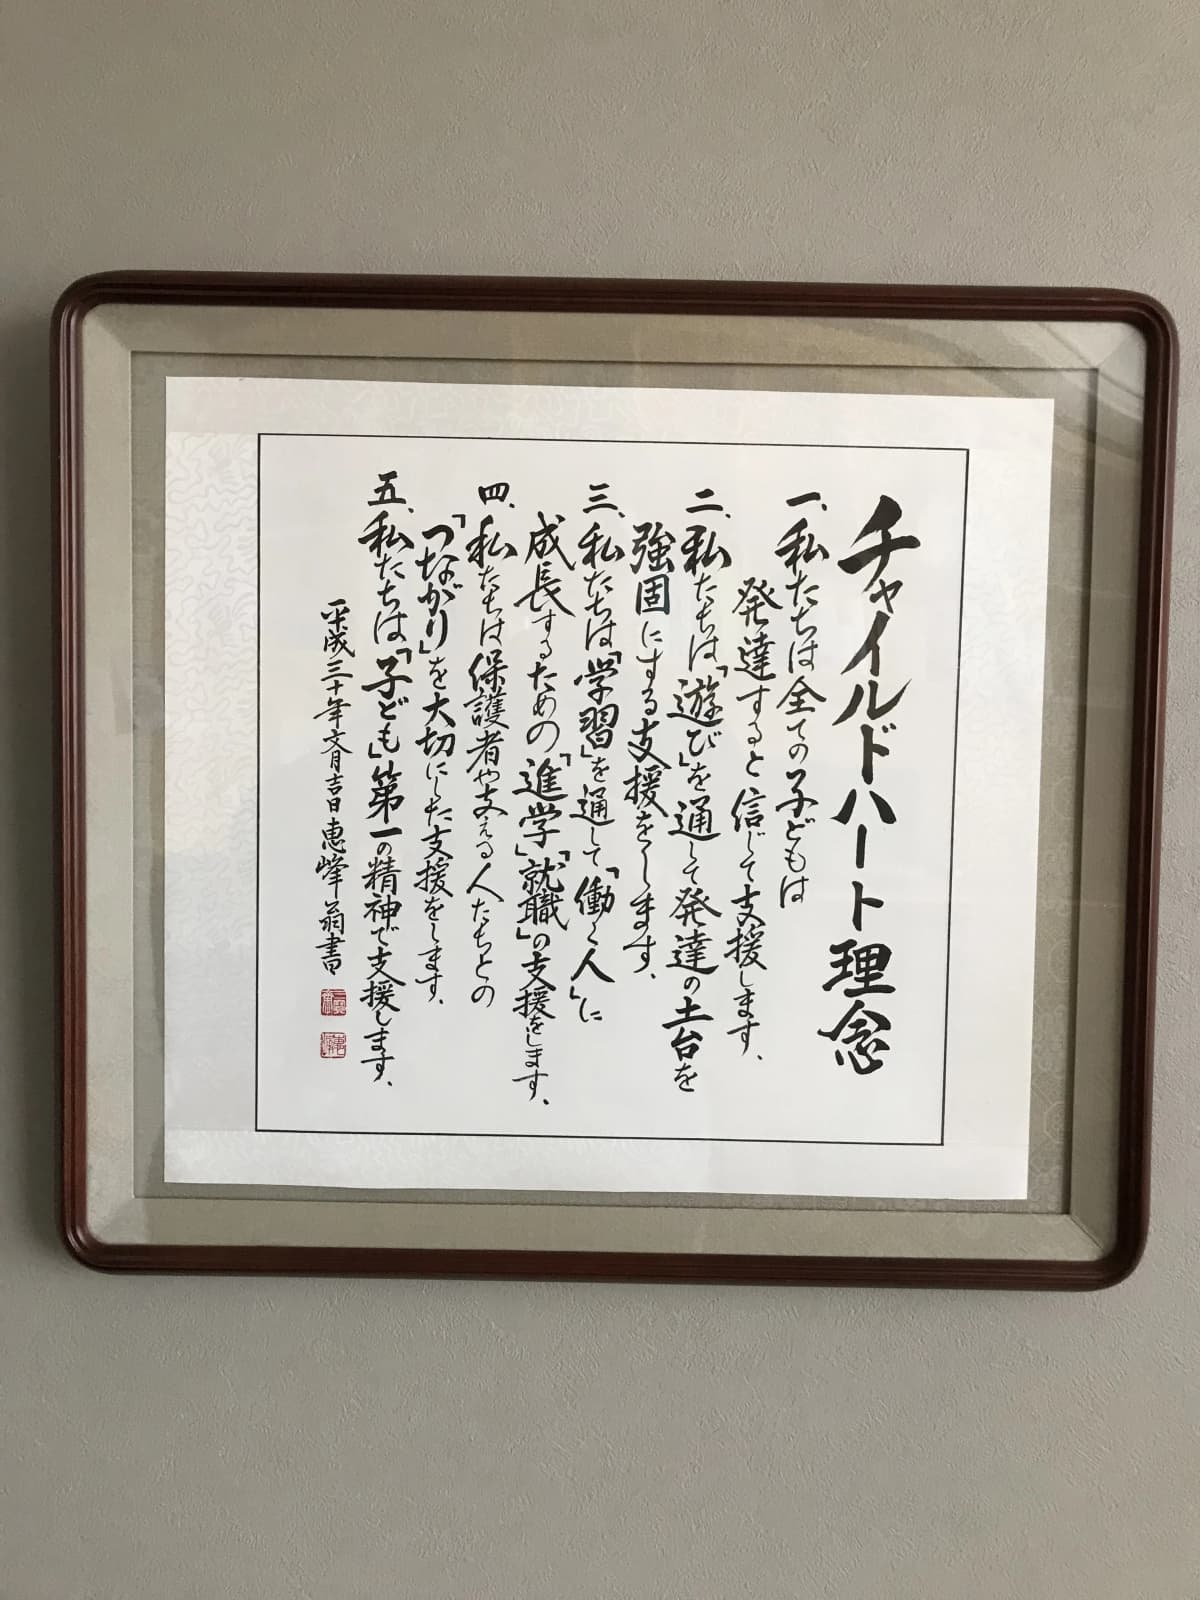 チャイルドハート理念
一、私たちは全ての子どもは
発達すると信じて支援します、
二、私たちは「遊び」を通して発達の土台を
強固にする支援をします、
三、私たちは「学習」を通して「働く人」に
成長するための「進学」「就職」の支援をします、
四、私たちは保護者や支える人たちとの
「つながり」を大切にした支援をします、
五、私たちは「子ども」第一の精神で支援します、
平成三十年文月吉日 恵峰翁書